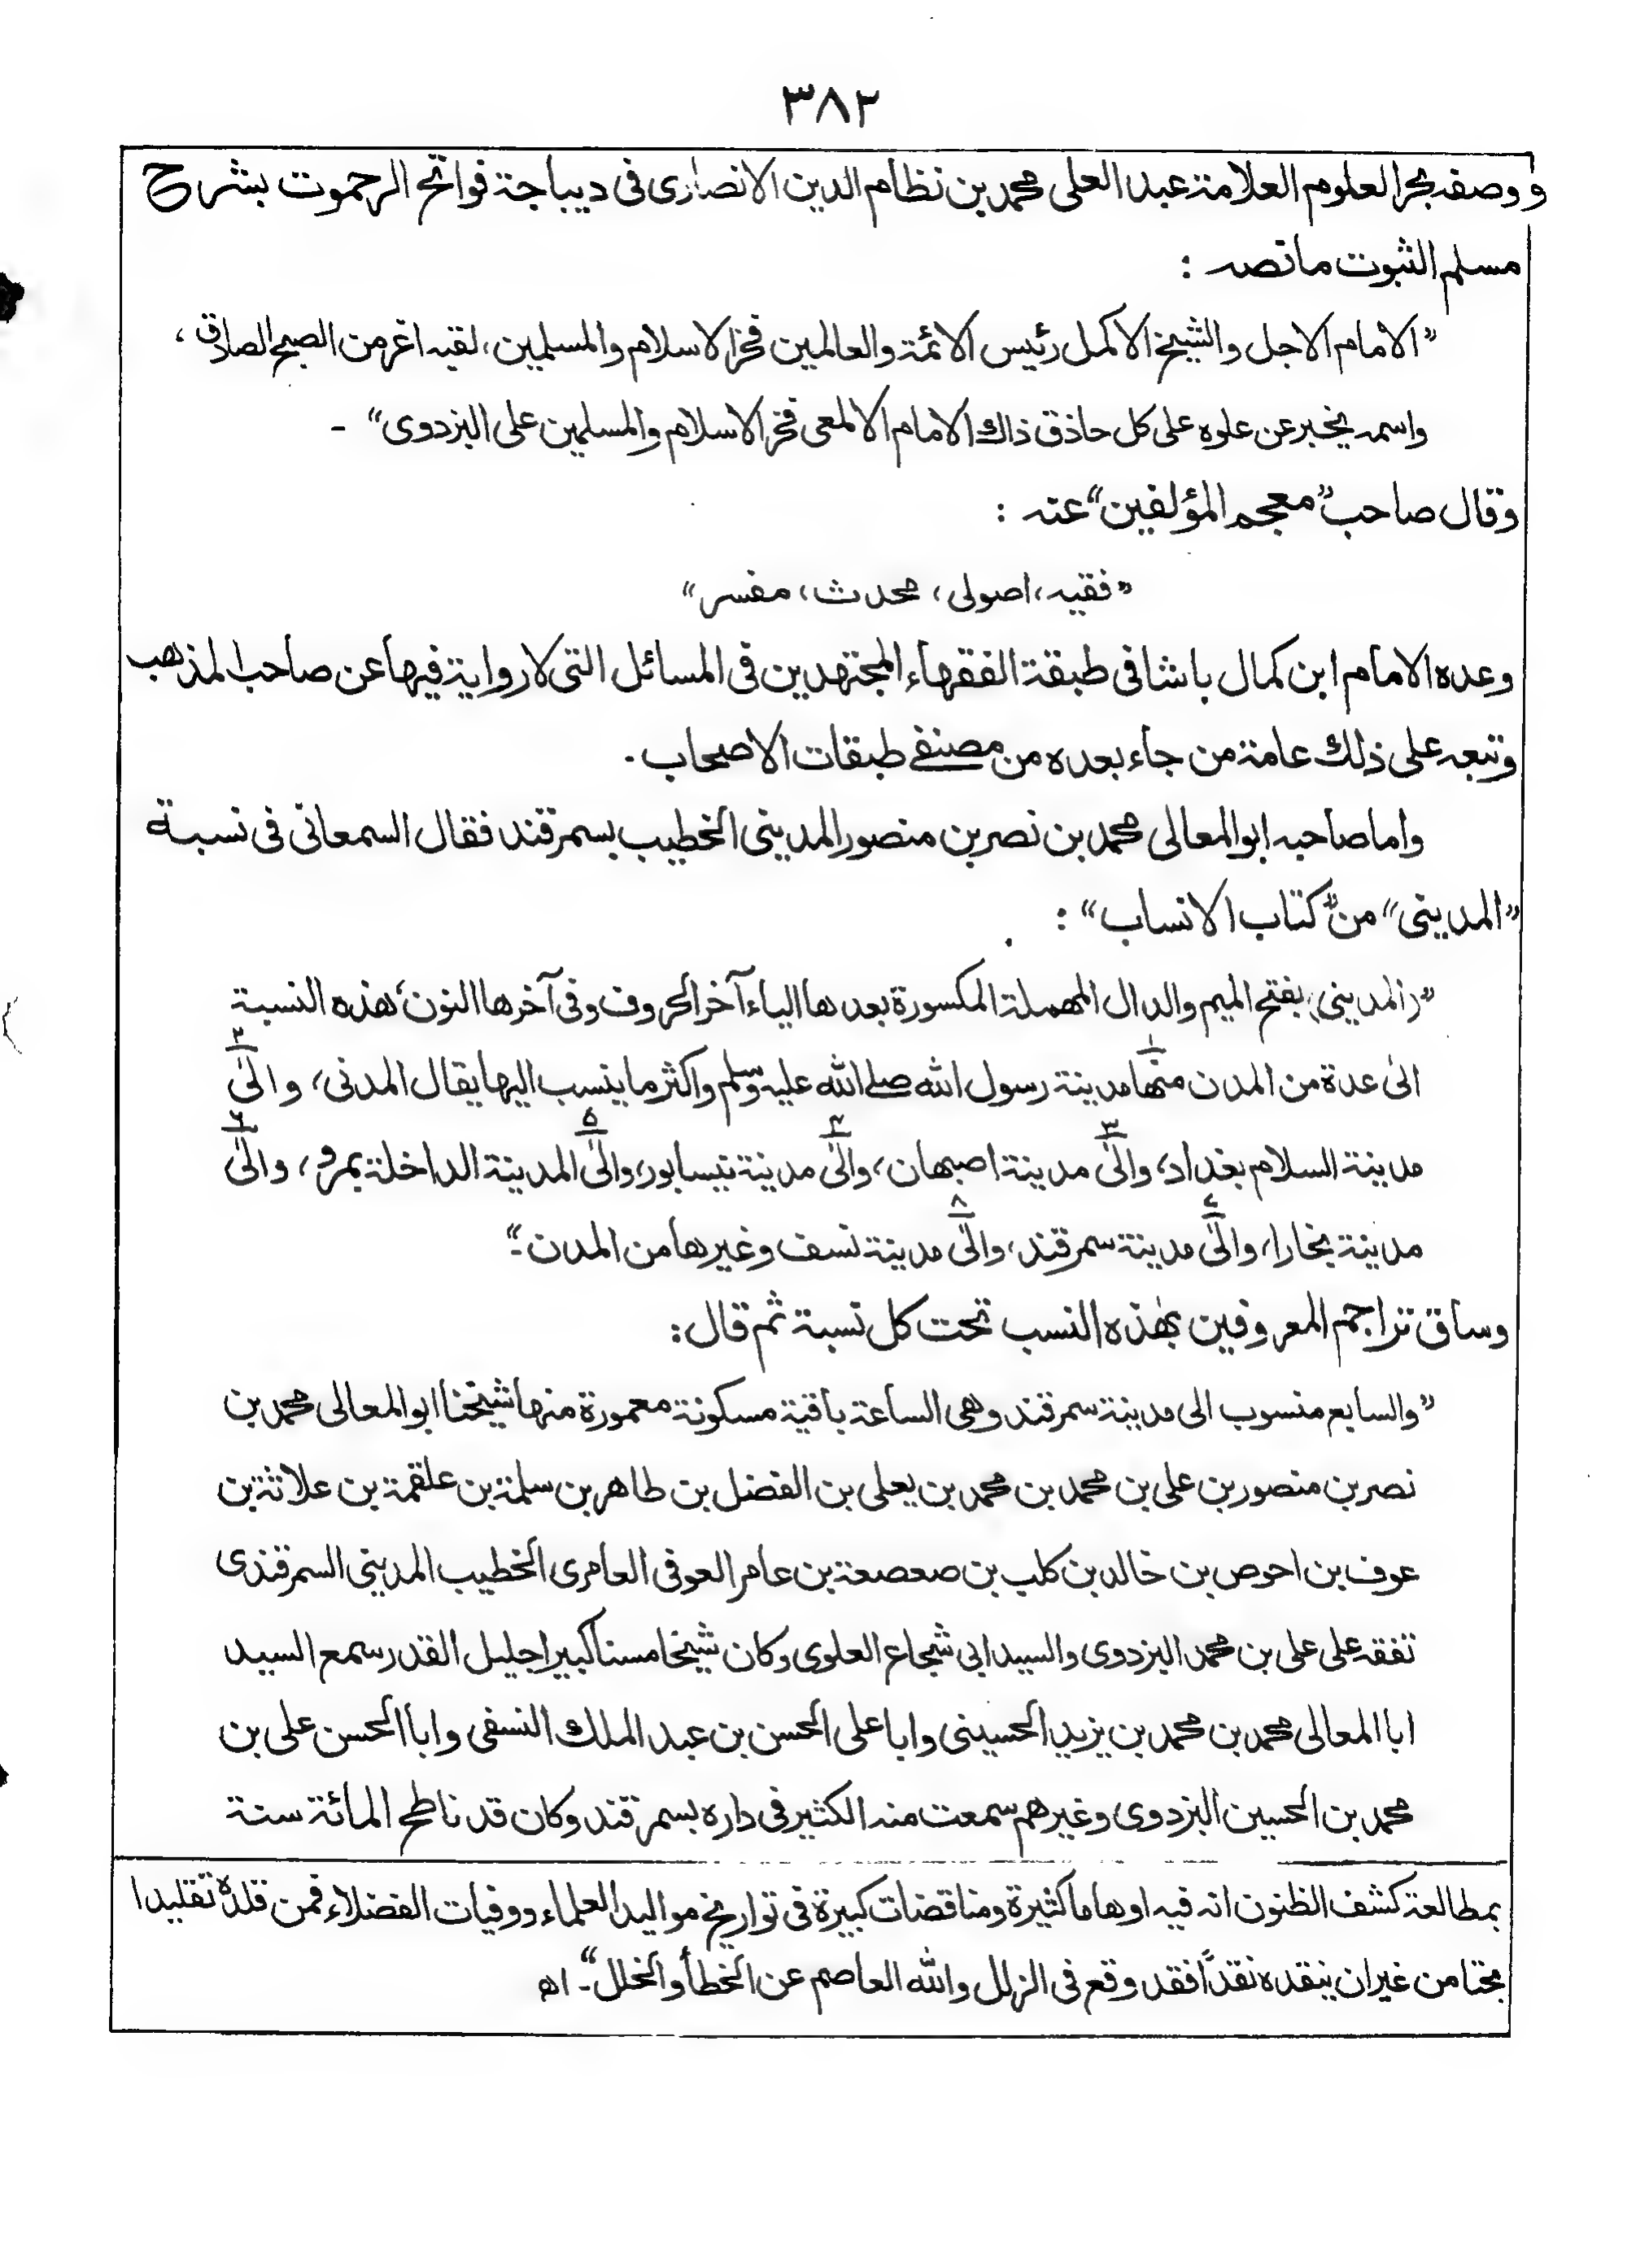 ٣٨٢
ووصفه بحر العلوم العلامة عبد العلى محمد بن نظام الدين الانصارى فى ديباجة فواتح الرحموت بشرح
مسلم الثبوت مانصه :
”الامام الاجل والشيخ الاكمل رئيس الائمة والعالمين فخر الاسلام والمسلمين، لقبه اغر من الصبح الصادق،
واسمه يخبر عن علوه على كل حاذق ذاك الامام الالمعى فخر الاسلام والمسلمين على البزدوى“ -
وقال صاحب ”معجم المؤلفين“ عنه :
”فقيه، اصولى، محدث، مفسر“
وعده الامام ابن كمال باشا فى طبقة الفقهاء المجتهدين فى المسائل التى لا رواية فيها عن صاحب المذهب
وتبعه على ذلك عامة من جاء بعده من مصنفے طبقات الاصحاب .
واما صاحبه ابو المعالى محمد بن نصر بن منصور المدينى الخطيب بسمرقند فقال السمعانى فى نسبة
”المدينى“ من ”كتاب الانساب“ :
”(المدينى) بفتح الميم والدال المهملة المكسورة بعدها الياء آخر الحروف وفى آخرها النون، هذه النسبة
الىٰ عدة من المدن ١ منها مدينة رسول الله صلے الله عليه وسلم واكثر ما ينسب اليها يقال المدنى، ٢ والىٰ
مدينة السلام بغداد، ٣ والىٰ مدينة اصبهان، ٤ والىٰ مدينة نيسابور، ٥ والىٰ المدينة الداخلة بمرو، ٦ والىٰ
مدينة بخارا، ٧ والىٰ مدينة سمرقند، ٨ والىٰ مدينة نسف وغيرها من المدن“۔
وساق تراجم المعروفين بهٰذه النسب تحت كل نسبة ثم قال :
”والسابع منسوب الى مدينة سمرقند وهى الساعة باقية مسكونة معمورة منها شيخنا ابو المعالى محمد بن
نصر بن منصور بن على بن محمد بن محمد بن يعلى بن الفضل بن طاهر بن سلمة بن علقمة بن علاثة بن
عوف بن احوص بن خالد بن كلب بن صعصعة بن عامر العوفى العامرى الخطيب المدينى السمرقندى
تفقه على على بن محمد البزدوى والسيد ابى شجاع العلوى وكان شيخا مسنا كبيرا جليل القدر سمع السيد
ابا المعالى محمد بن محمد بن يزيد الحسينى وابا على الحسن بن عبد الملك النسفى وابا الحسن على بن
محمد بن الحسين البزدوى وغيرهم سمعت منه الكثير فى داره بسمرقند وكان قد ناطح المائة سنة
بمطالعة كشف الظنون انه فيه اوهاما كثيرة ومناقضات كبيرة فى تواريخ مواليد العلماء ووفيات الفضلاء فمن قلده تقليدا
بحتا من غير ان ينقده نقداً فقد وقع فى الزلل والله العاصم عن الخطأ والخلل“۔ اھ